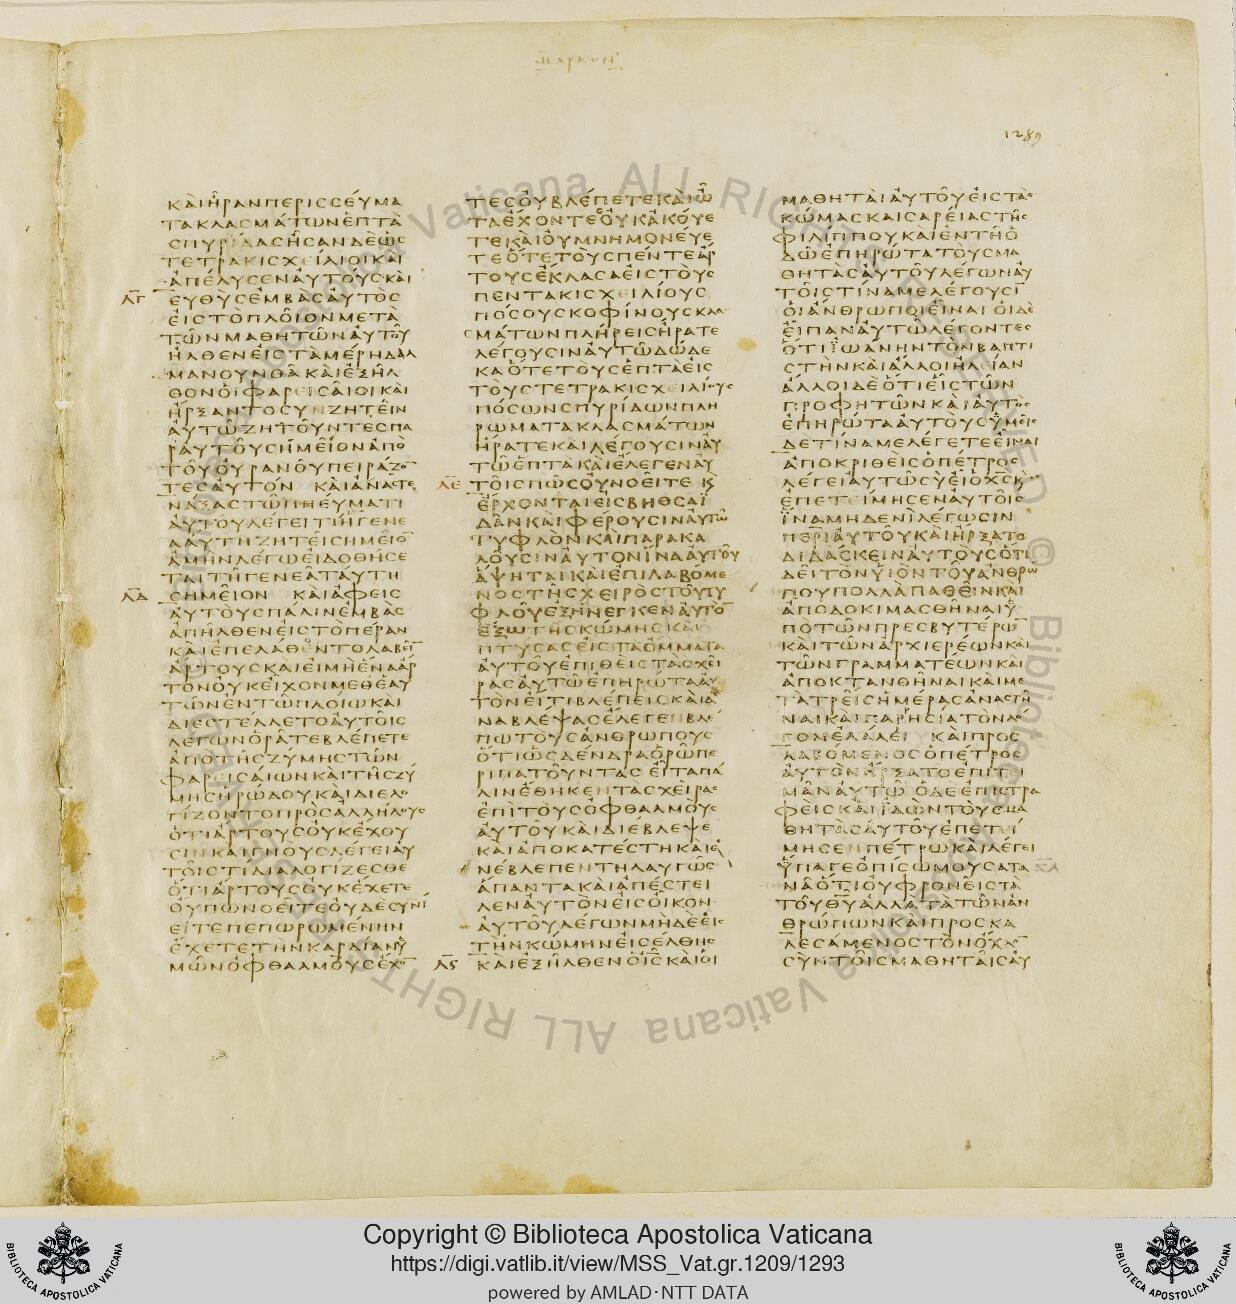 ΜΑΡΚΟΝ
1289
ΚΑΙΗΡΑΝΠΕΡΙΣΣΕΥΜΑ
ΤΑΚΛΑΣΜΑΤΩΝΕΠΤΑ
ΣΠΥΡΙΔΑΣΗΣΑΝΔΕΩΣ
ΤΕΤΡΑΚΙΣΧΕΙΛΙΟΙΚΑΙ
ΑΠΕΛΥΣΕΝΑΥΤΟΥΣΚΑΙ
ΛΓ ΕΥΘΥΣΕΜΒΑΣΑΥΤΟΣ
ΕΙΣΤΟΠΛΟΙΟΝΜΕΤΑ
ΤΩΝΜΑΘΗΤΩΝΑΥΤΟΥ
ΗΛΘΕΝΕΙΣΤΑΜΕΡΗΔΑΛ
ΜΑΝΟΥΝΘΑΚΑΙΕΞΗΛ
ΘΟΝΟΙΦΑΡΕΙΣΑΙΟΙΚΑΙ
ΗΡΞΑΝΤΟΣΥΝΖΗΤΕΙΝ
ΑΥΤΩΖΗΤΟΥΝΤΕΣΠΑ
ΡΑΥΤΟΥΣΗΜΕΙΟΝΑΠΟ
ΤΟΥΟΥΡΑΝΟΥΠΕΙΡΑΖΟ
ΤΕΣΑΥΤΟΝ ΚΑΙΑΝΑΣΤΕ
ΝΑΞΑΣΤΩΠΝΕΥΜΑΤΙ
ΑΥΤΟΥΛΕΓΕΙΤΙΗΓΕΝΕ
ΑΑΥΤΗΖΗΤΕΙΣΗΜΕΙΟ
ΑΜΗΝΛΕΓΩΕΙΔΟΘΗΣΕ
ΤΑΙΤΗΓΕΝΕΑΤΑΥΤΗ
ΛΔ ΣΗΜΕΙΟΝ ΚΑΙΑΦΕΙΣ
ΑΥΤΟΥΣΠΑΛΙΝΕΜΒΑΣ
ΑΠΗΛΘΕΝΕΙΣΤΟΠΕΡΑΝ
ΚΑΙΕΠΕΛΑΘΕΝΤΟΛΑΒΕΙ
ΑΡΤΟΥΣΚΑΙΕΙΜΗΕΝΑΑΡ
ΤΟΝΟΥΚΕΙΧΟΝΜΕΘΕΑΥ
ΤΩΝΕΝΤΩΠΛΟΙΩΚΑΙ
ΔΙΕΣΤΕΛΛΕΤΟΑΥΤΟΙΣ
ΛΕΓΩΝΟΡΑΤΕΒΛΕΠΕΤΕ
ΑΠΟΤΗΣΖΥΜΗΣΤΩΝ
ΦΑΡΕΙΣΑΙΩΝΚΑΙΤΗΣΖΥ
ΜΗΣΗΡΩΔΟΥΚΑΙΔΙΕΛΟ
ΓΙΖΟΝΤΟΠΡΟΣΑΛΛΗΛΟΥΣ
ΟΤΙΑΡΤΟΥΣΟΥΚΕΧΟΥ
ΣΙΝΚΑΙΓΝΟΥΣΛΕΓΕΙΑΥ
ΤΟΙΣΤΙΔΙΑΛΟΓΙΖΕΣΘΕ
ΟΤΙΑΡΤΟΥΣΟΥΚΕΧΕΤΕ
ΟΥΠΩΝΟΕΙΤΕΟΥΔΕΣΥΝΙ
ΕΙΤΕΠΕΠΩΡΩΜΕΝΗΝ
ΕΧΕΤΕΤΗΝΚΑΡΔΙΑΝΥ
ΜΩΝΟΦΘΑΛΜΟΥΣΕΧΟ
ΤΕΣΟΥΒΛΕΠΕΤΕΚΑΙΩ
ΤΑΕΧΟΝΤΕΣΟΥΚΑΚΟΥΕ
ΤΕΚΑΙΟΥΜΝΗΜΟΝΕΥΕ
ΤΕΟΤΕΤΟΥΣΠΕΝΤΕΑΡ
ΤΟΥΣΕΚΛΑΣΑΕΙΣΤΟΥΣ
ΠΕΝΤΑΚΙΣΧΕΙΛΙΟΥΣ
ΠΟΣΟΥΣΚΟΦΙΝΟΥΣΚΛΑ
ΣΜΑΤΩΝΠΛΗΡΕΙΣΗΡΑΤΕ
ΛΕΓΟΥΣΙΝΑΥΤΩΔΩΔΕ
ΚΑΟΤΕΤΟΥΣΕΠΤΑΕΙΣ
ΤΟΥΣΤΕΤΡΑΚΙΣΧΕΙΛΙΟΥΣ
ΠΟΣΩΝΣΠΥΡΙΔΩΝΠΛΗ
ΡΩΜΑΤΑΚΛΑΣΜΑΤΩΝ
ΗΡΑΤΕΚΑΙΛΕΓΟΥΣΙΝΑΥ
ΤΩΕΠΤΑΚΑΙΕΛΕΓΕΝΑΥ
ΛΕ ΤΟΙΣΠΩΣΟΥΝΟΕΙΤΕ Κ
ΕΡΧΟΝΤΑΙΕΙΣΒΗΘΣΑΪ
ΔΑΝΚΑΙΦΕΡΟΥΣΙΝΑΥΤΩ
ΤΥΦΛΟΝΚΑΙΠΑΡΑΚΑ
ΛΟΥΣΙΝΑΥΤΟΝΙΝΑΑΥΤΟΥ
ΑΨΗΤΑΙΚΑΙΕΠΙΛΑΒΟΜΕ
ΝΟΣΤΗΣΧΕΙΡΟΣΤΟΥΤΥ
ΦΛΟΥΕΞΗΝΕΓΚΕΝΑΥΤΟ
ΕΞΩΤΗΣΚΩΜΗΣΚΑΙ
ΠΤΥΣΑΣΕΙΣΤΑΟΜΜΑΤΑ
ΑΥΤΟΥΕΠΙΘΕΙΣΤΑΣΧΕΙ
ΡΑΣΑΥΤΩΕΠΗΡΩΤΑΑΥ
ΤΟΝΕΙΤΙΒΛΕΠΕΙΣΚΑΙΑ
ΝΑΒΛΕΨΑΣΕΛΕΓΕΝΒΛΕ
ΠΩΤΟΥΣΑΝΘΡΩΠΟΥΣ
ΟΤΙΩΣΔΕΝΔΡΑΟΡΩΠΕ
ΡΙΠΑΤΟΥΝΤΑΣ ΕΙΤΑΠΑ
ΛΙΝΕΘΗΚΕΝΤΑΣΧΕΙΡΑΣ
ΕΠΙΤΟΥΣΟΦΘΑΛΜΟΥΣ
ΑΥΤΟΥΚΑΙΔΙΕΒΛΕΨΕ
ΚΑΙΑΠΟΚΑΤΕΣΤΗΚΑΙΕ
ΝΕΒΛΕΠΕΝΤΗΛΑΥΓΩΣ
ΑΠΑΝΤΑΚΑΙΑΠΕΣΤΕΙ
ΛΕΝΑΥΤΟΝΕΙΣΟΙΚΟΝ
ΑΥΤΟΥΛΕΓΩΝΜΗΔΕΕΙΣ
ΤΗΝΚΩΜΗΝΕΙΣΕΛΘΗΣ
ΛϚ ΚΑΙΕΞΗΛΘΕΝΟΙΣΚΑΙΟΙ
ΜΑΘΗΤΑΙΑΥΤΟΥΕΙΣΤΑΣ
ΚΩΜΑΣΚΑΙΣΑΡΕΙΑΣΤΗΣ
ΦΙΛΙΠΠΟΥΚΑΙΕΝΤΗΟ
ΔΩΕΠΗΡΩΤΑΤΟΥΣΜΑ
ΘΗΤΑΣΑΥΤΟΥΛΕΓΩΝΑΥ
ΤΟΙΣΤΙΝΑΜΕΛΕΓΟΥΣΙ
ΟΙΑΝΘΡΩΠΟΙΕΙΝΑΙ ΟΙΔΕ
ΕΙΠΑΝΑΥΤΩΛΕΓΟΝΤΕΣ
ΟΤΙΪΩΑΝΗΝΤΟΝΒΑΠΤΙ
ΣΤΗΝΚΑΙΑΛΛΟΙΗΛΕΙΑΝ
ΑΛΛΟΙΔΕΟΤΙΕΙΣΤΩΝ
ΠΡΟΦΗΤΩΝΚΑΙΑΥΤΟΣ
ΕΠΗΡΩΤΑΑΥΤΟΥΣΥΜΕΙΣ
ΔΕΤΙΝΑΜΕΛΕΓΕΤΕΕΙΝΑΙ
ΑΠΟΚΡΙΘΕΙΣΟΠΕΤΡΟΣ
ΛΕΓΕΙΑΥΤΩΣΥΕΙΟΧΣΚ
ΕΠΕΤΕΙΜΗΣΕΝΑΥΤΟΙΣ
ΪΝΑΜΗΔΕΝΙΛΕΓΩΣΙΝ
ΠΕΡΙΑΥΤΟΥΚΑΙΗΡΞΑΤΟ
ΔΙΔΑΣΚΕΙΝΑΥΤΟΥΣΟΤΙ
ΔΕΙΤΟΝΥΙΟΝΤΟΥΑΝΘΡΩ
ΠΟΥΠΟΛΛΑΠΑΘΕΙΝΚΑΙ
ΑΠΟΔΟΚΙΜΑΣΘΗΝΑΙΫ
ΠΟΤΩΝΠΡΕΣΒΥΤΕΡΩ
ΚΑΙΤΩΝΑΡΧΙΕΡΕΩΝΚΑΙ
ΤΩΝΓΡΑΜΜΑΤΕΩΝΚΑΙ
ΑΠΟΚΤΑΝΘΗΝΑΙΚΑΙΜΕ
ΤΑΤΡΕΙΣΗΜΕΡΑΣΑΝΑΣΤΗ
ΝΑΙΚΑΙΠΑΡΗΣΙΑΤΟΝΛΟ
ΓΟΝΕΛΑΛΕΙ ΚΑΙΠΡΟΣ
ΛΑΒΟΜΕΝΟΣΟΠΕΤΡΟΣ
ΑΥΤΟΝΗΡΞΑΤΟΕΠΙΤΙ
ΜΑΝΑΥΤΩ ΟΔΕΕΠΙΣΤΡΑ
ΦΕΙΣΚΑΙΙΔΩΝΤΟΥΣΜΑ
ΘΗΤΑΣΑΥΤΟΥΕΠΕΤΙ
ΜΗΣΕΝΠΕΤΡΩΚΑΙΛΕΓΕΙ
ΫΠΑΓΕΟΠΙΣΩΜΟΥΣΑΤΑ
ΝΑΟΤΙΟΥΦΡΟΝΕΙΣΤΑ
ΤΟΥΘΥΑΛΛΑΤΑΤΩΝΑΝ
ΘΡΩΠΩΝΚΑΙΠΡΟΣΚΑ
ΛΕΣΑΜΕΝΟΣΤΟΝΟΧΛΟ
ΣΥΝΤΟΙΣΜΑΘΗΤΑΙΣΑΥ
Copyright © Biblioteca Apostolica Vaticana
https://digi.vatlib.it/view/MSS_Vat.gr.1209/1293
powered by AMLAD·NTT DATA
BIBLIOTECA APOSTOLICA VATICANA
BIBLIOTECA APOSTOLICA VATICANA